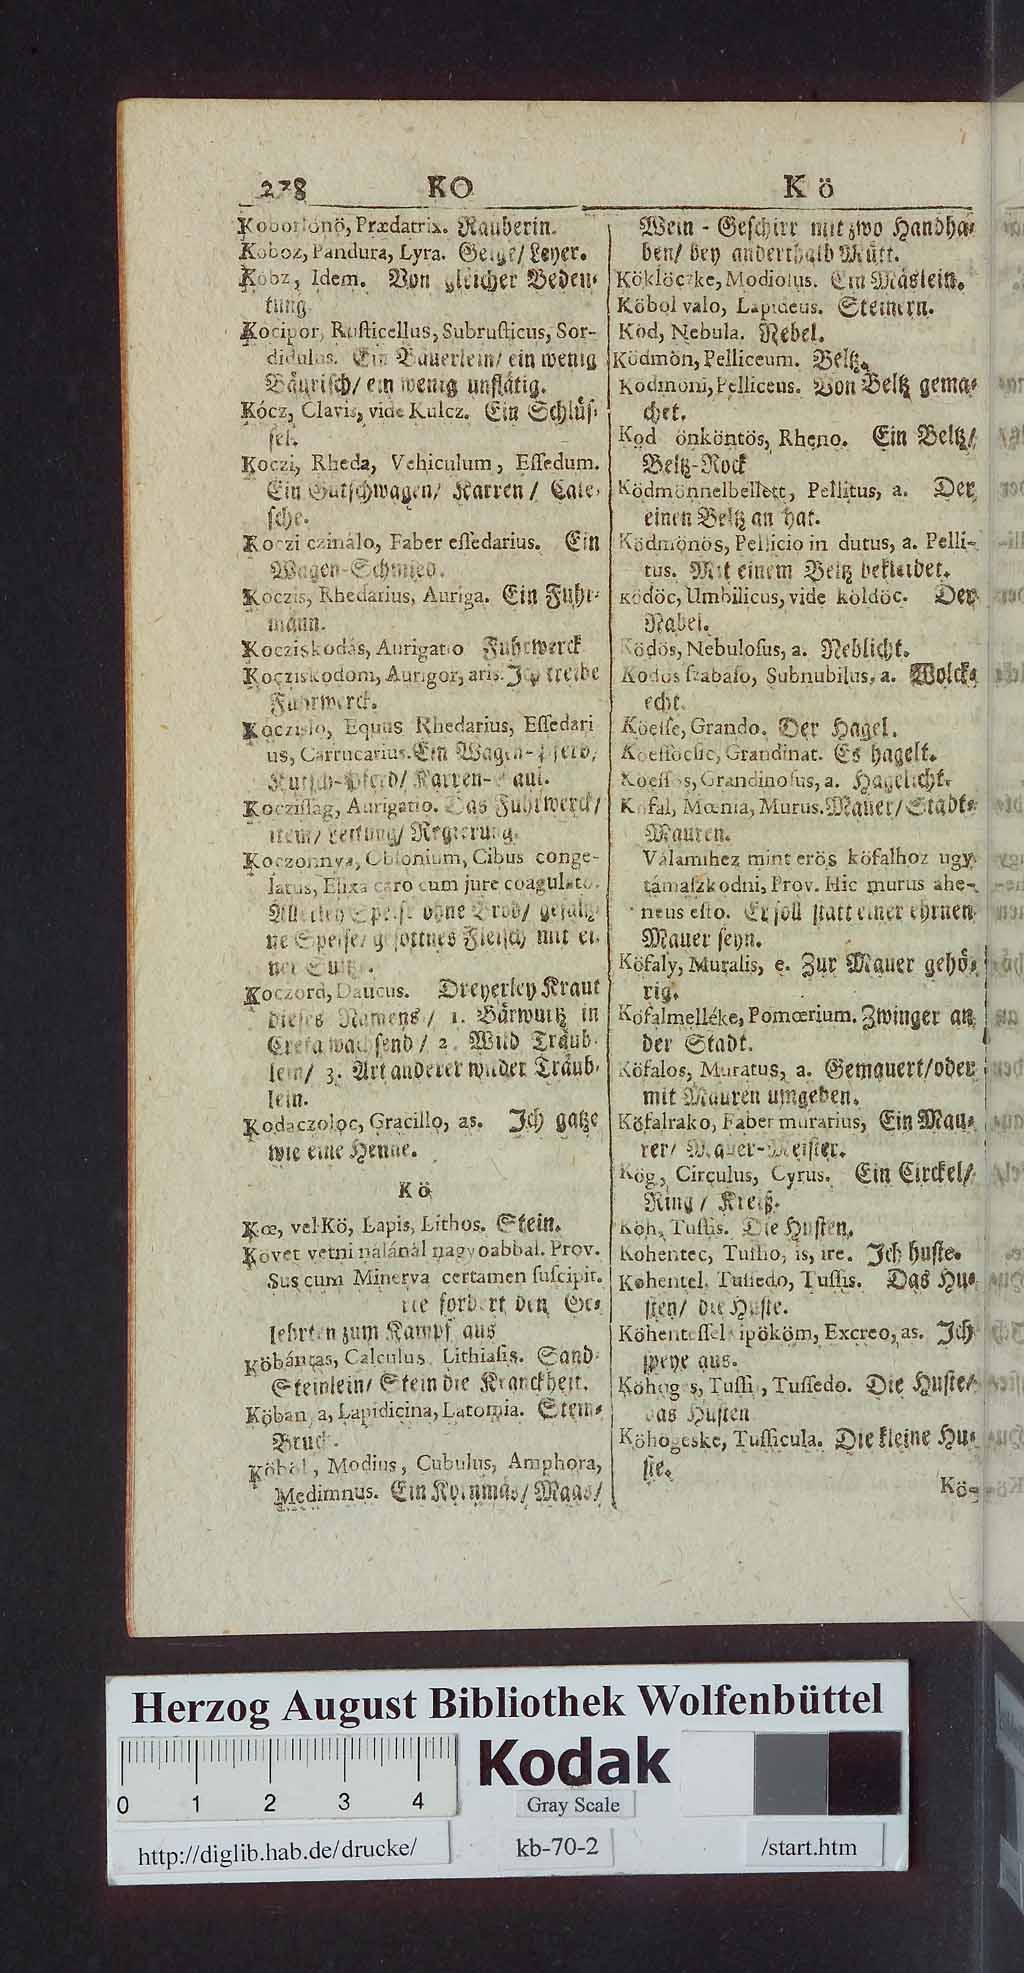 228 KO Kö
Koborlónö, Prædatrix. Rauberin.
Koboz, Pandura, Lyra. Geige/ Leyer.
Kobz, Idem. Von gleicher Bedeu-
tung.
Kocipor, Rusticellus, Subrusticus, Sor-
didulus. Ein Bäuerlein/ ein wenig
Bäurisch/ ein wenig unflätig.
Kócz, Clavis, vide Kulcz. Ein Schlüs-
sel.
Koczi, Rheda, Vehiculum, Essedum.
Ein Gutschwagen/ Karren/ Cale-
sche.
Koczi czinálo, Faber essedarius. Ein
Wagen-Schmied.
Koczis, Rhedarius, Auriga. Ein Fuhr-
mann.
Kocziskodás, Aurigatio Fuhrwerck
Kocziskodom, Aurigor, aris. Ich treibe
Fuhrwerck.
Koczislo, Equus Rhedarius, Essedari
us, Carrucarius. Ein Wagen-Pferd,
Kutsch-Pferd/ Karren-Gaul.
Koczisság, Aurigatio. Das Fuhrwerck/
item/ Leitung/ Regierung.
Koczonnya, Obsonium, Cibus conge-
latus, Elixa caro cum jure coagulato.
Allerley Speise ohne Brod/ gesultz-
ne Speise/ gesottnes Fleisch mit ei-
ner Sultz.
Koczord, Daucus. Dreyerley Kraut
dieses Namens/ 1. Bärwurtz in
Creta wachsend/ 2. Wild Träub-
lein/ 3. Art anderer wilder Träub-
lein.
Kodaczoloc, Gracillo, as. Ich gatze
wie eine Henne.
Kö
Kœ, vel Kö, Lapis, Lithos. Stein.
Követ vetni nálánál nagyobbal. Prov.
Sus cum Minerva certamen suscipit.
fordert den Ge-
lehrten zum Kampf aus
Köbántas, Calculus, Lithiasis. Sand-
Steinlein/ Stein die Kranckheit.
Köbanya, Lapidicina, Latomia. Stein-
Bruch.
Köböl, Modius, Cubulus, Amphora,
Medimnus. Ein Kornmäs/ Maas/
Wein-Geschirr mit zwo Handha-
ben/ bey anderthalb Mütt.
Köklöczke, Modiolus. Ein Mäslein.
Köbol valo, Lapideus. Steinern.
Köd, Nebula. Nebel.
Ködmön, Pelliceum. Beltz.
Kodmöni, Pelliceus. Von Beltz gema-
chet.
Kod önköntös, Rheno. Ein Beltz/
Beltz-Rock
Ködmönnelbellett, Pellitus, a. Der
einen Beltz an hat.
Ködmönös, Pellicio in dutus, a. Pelli-
tus. Mit einem Beltz bekleidet.
Ködöc, Umbilicus, vide köldöc. Der
Nabel.
Ködös, Nebulosus, a. Neblicht.
Kodös szabaso, Subnubilus, a. Wolck-
echt.
Köesse, Grando. Der Hagel.
Köessöcsic, Grandinat. Es hagelt.
Koessös, Grandinosus, a. Hagelicht.
Kofal, Mœnia, Murus. Mauer/ Stadt-
Mauren.
Válamihez mint erös köfalhoz ugy
támaszkodni, Prov. Hic murus ahe-
neus esto. Er soll statt einer ehrnen
Mauer seyn.
Köfaly, Muralis, e. Zur Mauer gehö-
rig.
Köfalmelléke, Pomœrium. Zwinger an
der Stadt.
Köfalos, Muratus, a. Gemauert/ oder
mit Mauren umgeben.
Köfalrako, Faber murarius, Ein Mau-
rer/ Mauer-Meister.
Kög, Circulus, Cyrus. Ein Circkel/
Ring/ Kreiß.
Köh, Tussis. Die Husten.
Kohentec, Tussio, is, ire. Ich huste.
Kohentel, Tussedo, Tussis. Das Hu-
sten/ die Huste.
Köhentessel ipököm, Excreo, as. Ich
speye aus.
Köhöges, Tussis, Tussedo. Die Huste/
das Husten
Köhögeske, Tussicula. Die kleine Hu-
ste.
Kög-
Herzog August Bibliothek Wolfenbüttel
Kodak
0 1 2 3 4
Gray Scale
http://diglib.hab.de/drucke/ kb-70-2 /start.htm